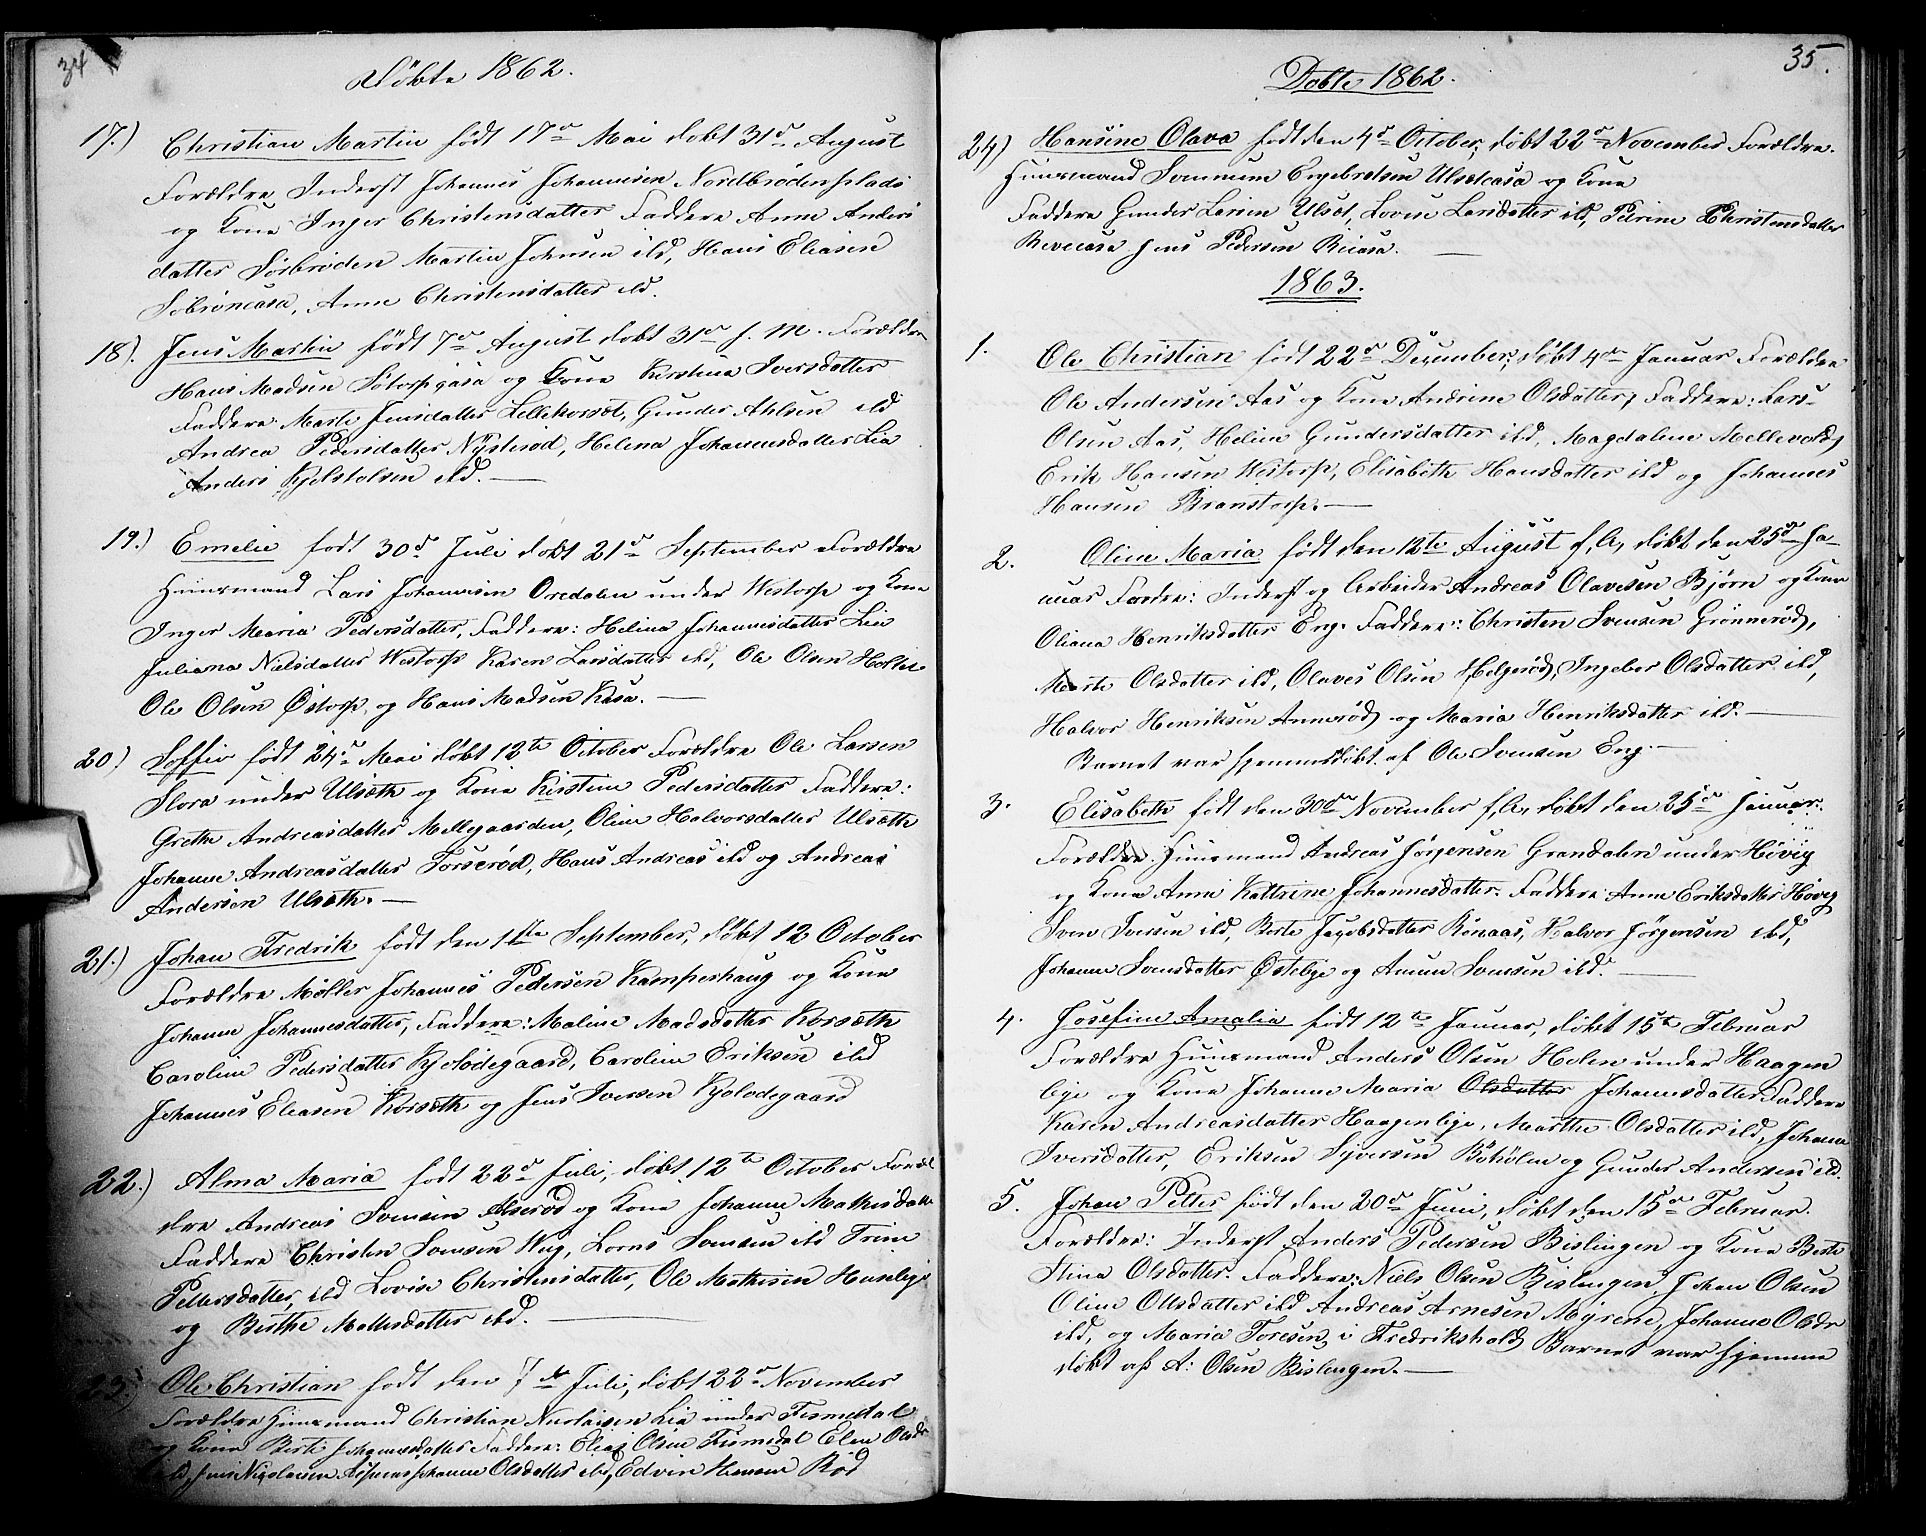 34
Døbte 1862.
17.) Christian Martin født 17de Mai døbt 31d August
Forældre Inderst Johannes Johannesen Nordbrødenplads
og Kone Inger Christensdatter Faddere Anne Anders
datter Sørbrøden Martin Johnsen ibd, Hans Eliasen
Anne Christensdatter ibd.
18). Jens Martin født 7de August døbt 31te s. M. Forældre
Hans Madsen og Kone Kirstina Iversdatter
Faddere Marte Jensdatter Lillekorsæt, Gunder Ahlsen ibd
Andrea Pedersdatter Nysterød, Helena Johannesdatter Lia
Anders Kjelstolsen ibd.
19.) Emelie født 30d Juli døbt 21d September Forældre
Huusmand Lars Johannesen Oredalen under Westorp og Kone
Inger Maria Pedersdatter, Faddere: Helina Johannesdatter Lie
Juliana Nielsdatter Westorp Karen Larsdatter ibd, Ole Olsen
Ole Olsen Østorp, og Hans Madsen Kasa.
20) Soffie født 24d Mai døbt 12te October Forældre Ole Larsen
Flora under Ulseth og Kone Kirstine Pedersdatter Faddere:
Grethe Andreasdatter Mellegaarden, Oline Halvorsdatter Ulseth
Johanne Andreasdatter Torserød, Hans Andreas ibd og Andreas
Andersen Ulseth.
21.) Johan Fredrik født den 1ste September, døbt 12 October
Forældre Møller Johannes Pedersen Kamperhaug og Kone
Johanne Johannesdatter, Faddere: Maline Madsdatter Korseth
Caroline Pedersdatter Kjolødegaard, Caroline Eriksen ibd
Johannes Eleasen Korseth og Jens Iversen Kjolodegaard
22.) Alma Maria født 22d Juli, døbt 12te October Foræl
dre Andreas Svensen og Kone Johanne Mathisdatter
Faddere Christen Svensen Wug, Svensen ibd Trine
Pettersdatter, ibd Lovise Christensdatter, Ole Mathisen
og Berthe ibd.
23. Ole Christian født den 7de Juli, døbt 22d November
Forældre Huusmand Christian Nicolaisen Lia under Tismedal
og Kone Berte Johannesdatter Faddere: Elias Olsen Tismedal Elen Olsdr
ibd, Jens Nicolaisen Johanne Olsdatter ibd, Edvin Hansen Rød
35.
Døbte 1862.
24) Hansine Olava født den 4d October, døbt 22d November Forældre.
Huusmand Svennum Engebretsen Ulsætcasa og Kone
Faddere Gunder Larsen Ulsæt, Lovise Larsdatter ibd, Petrine Christensdatter
Jens Pedersen
1863.
1. Ole Christian født 22d December, døbt 4de Januar Forældre
Ole Andersen Aas og Kone Andrine Olsdatter, Faddere: Lars
Olsen Aas, Heline Gundersdatter ibd, Magdalene Mellevold,
Erik Hansen Westorp, Elisabeth Hansdatter ibd og Johannes
Hansen Branstorp.
2. Oline Maria født den 12te August f. A, døbt den 25de Ja-
nuar Fordre: Inderst og Arbeider Andreas Olavesen Bjørn og Kone
Oliana Henriksdatter Eng. Faddere: Christen Svensen Grønnerød,
Marte Olsdatter ibd, Olaves Olsen Helgerød, Ingebor Olsdatter ibd,
Halvor Henriksen Annerød og Maria Henriksdatter ibd.
Barnet var hjemmedøbt af Ole Svensen Eng.
3. Elisabeth født den 30te November f. A, døbt den 25d Januar.
Forældre. Huusmand Andreas Jørgensen Grandalen under Høvig
og Kone Anne Kattrine Johannesdatter. Faddere Anne Eriksdatter Høvig
Sven Svensen ibd, Berte Jacobsdatter Rønaas, Halvor Jørgensen ibd,
Johanne Svensdatter Østebye og Amun Svensen ibd.
4. Josefine Amalia født 12te Januar, døbt 15te Februar
Forældre Huusmand Anders Olsen Holen under Haagen
bye og Kone Johanne Maria Olsdatter Johannesdatter Faddere
Karen Andreasdatter Haagenbye, Marthe Olsdatter ibd, Johanne
Iversdatter, Eriksen Syversen Bøhølen og Gunder Andersen ibd.
5. Johan Petter født den 20d Juni, døbt den 15de Februar.
Forældre: Inderst Anders Pedersen Bislingen og Kone Berte
Stina Olsdatter. Faddere: Niels Olsen Bislengen, Johan Olsen
Oline Olsdatter ibd Andreas Arnesen Myrene, Johanne Olsdr
ibd, og Maria Toresen, i Fredrikshald, Barnet var hjemme
døbt af A: Olsen Bislengen.